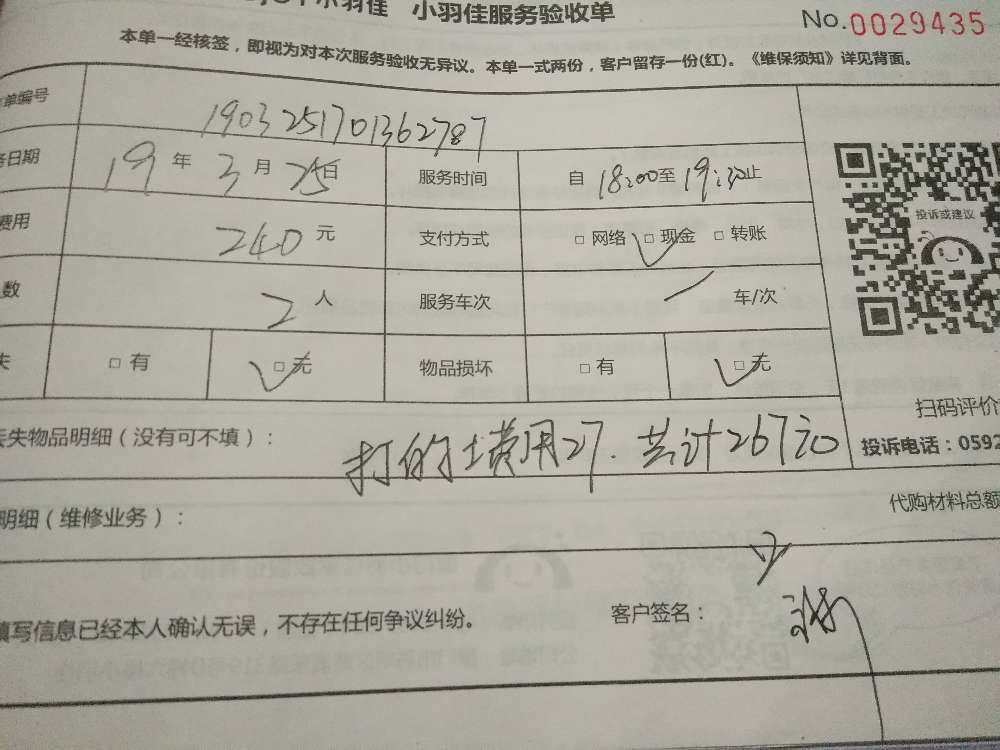 小羽佳 小羽佳服务验收单
No.0029435
本单一经核签，即视为对本次服务验收无异议。本单一式两份，客户留存一份(红)。《维保须知》详见背面。
单编号 1903251701362787
日期 19年3月25日 服务时间 自18:00至19:30止
费用 240元 支付方式 □网络 □现金 □转账
数 2人 服务车次 车/次
失 □有 □无 物品损坏 □有 □无
投诉或建议
扫码评价
投诉电话：0592
丢失物品明细（没有可不填）：
打的士费用27.共计267元
代购材料总额
明细（维修业务）：
填写信息已经本人确认无误，不存在任何争议纠纷。 客户签名：